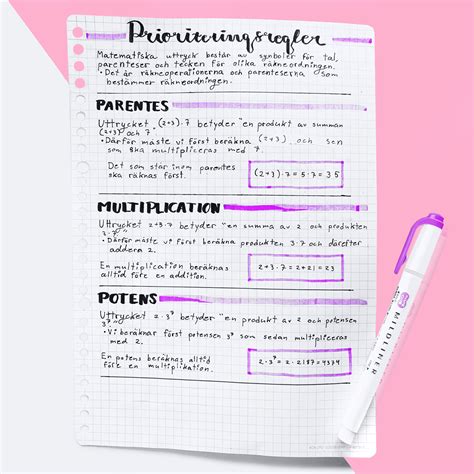 Prioriteringsregler
Matematiska uttryck består av symboler för tal,
parenteser och tecken för olika räkneordningen.
• Det är räkneoperationerna och parenteserna som
bestämmer räkneordningen.
PARENTES
Uttrycket (2+3)·7 betyder "en produkt av summan
(2+3) och 7."
• Därför måste vi först beräkna (2+3), och sen
som ska multipliceras med 7.
Det som står inom parentes
ska räknas först.
(2+3)·7=5·7=35
MULTIPLICATION
Uttrycket 2+3·7 betyder "en summa av 2 och produkten
3·7"
• Därför måste vi först beräkna produkten 3·7 och därefter
addera 2.
En multiplication beräknas
alltid före en addition.
2+3·7=2+21=23
POTENS
Uttrycket 2·3⁷ betyder "en produkt av 2 och potensen
3⁷"
• Vi beräknar först potensen 3⁷ som sedan multipliceras
med 2.
En potens beräknas alltid
före en multiplikation.
2·3⁷=2·2187=4374
MILDLINER